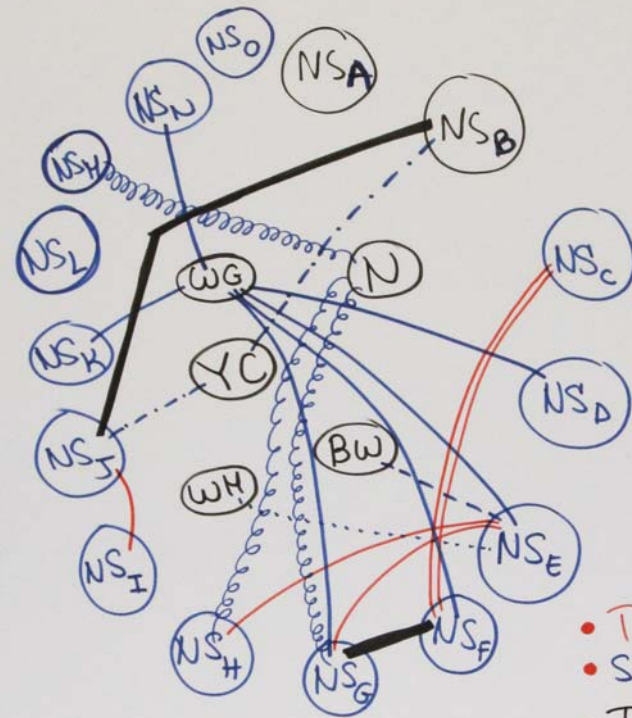 NSO
NSA
NSN
NSB
NSH
NSL
WG
N
NSC
NSK
YC
NSD
NSJ
BW
WM
NSE
NSI
NSH
NSG
NSF